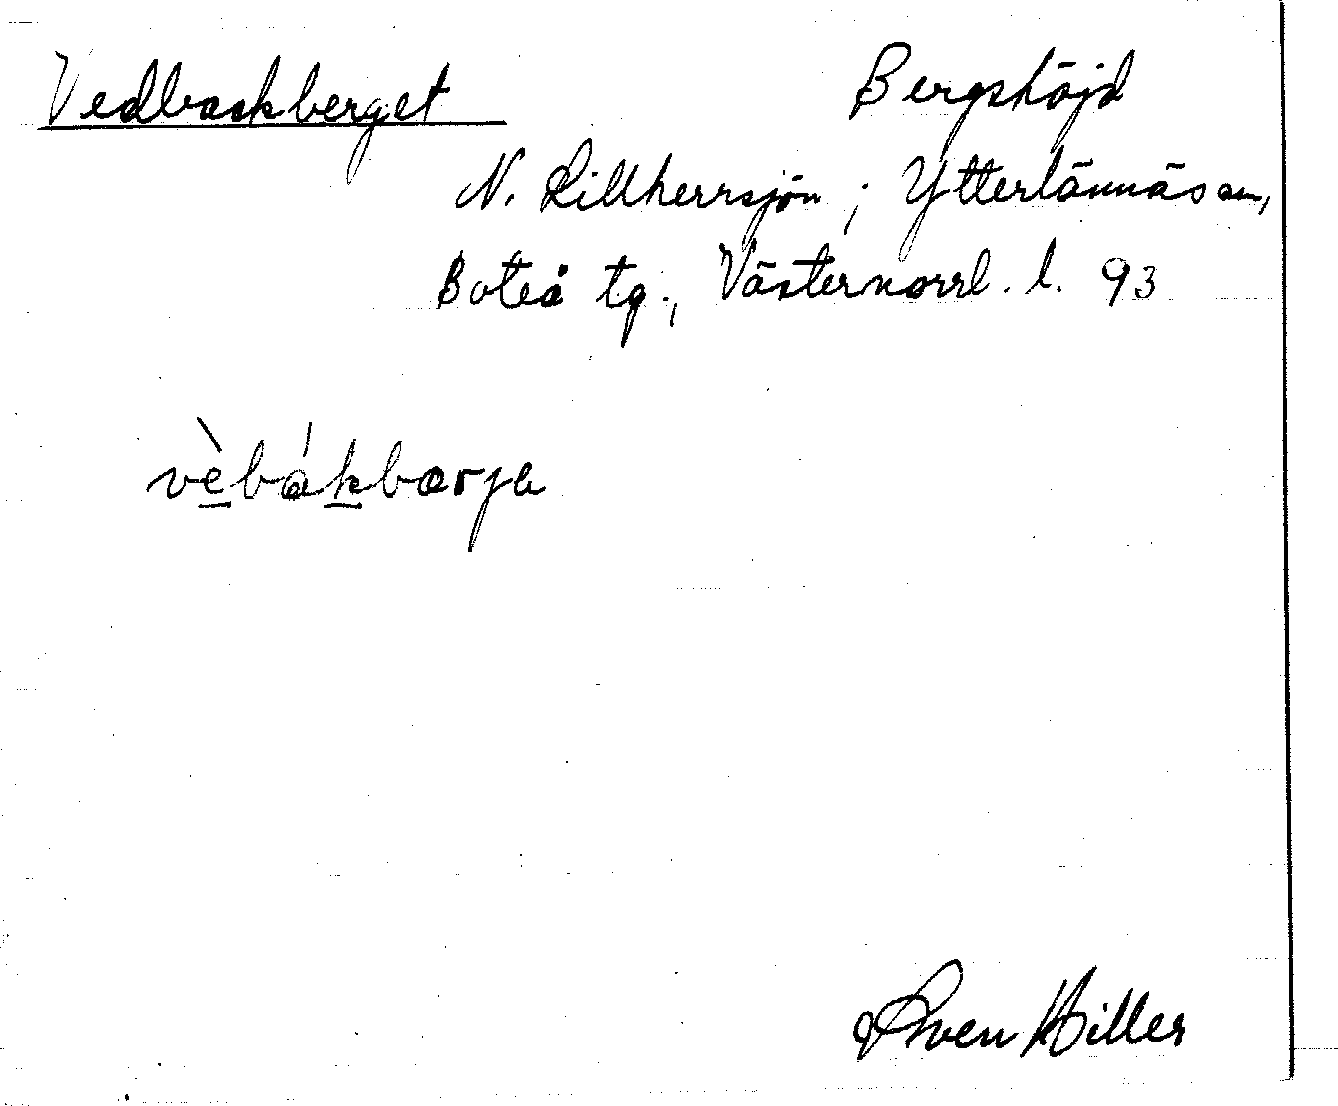 Vedbackberget Bergshöjd
N. Lillherrsjön ; Ytterlännäs sn,
Boteå tg., Västernorrl. l. 93
vèbákbærja
Sven Hilles